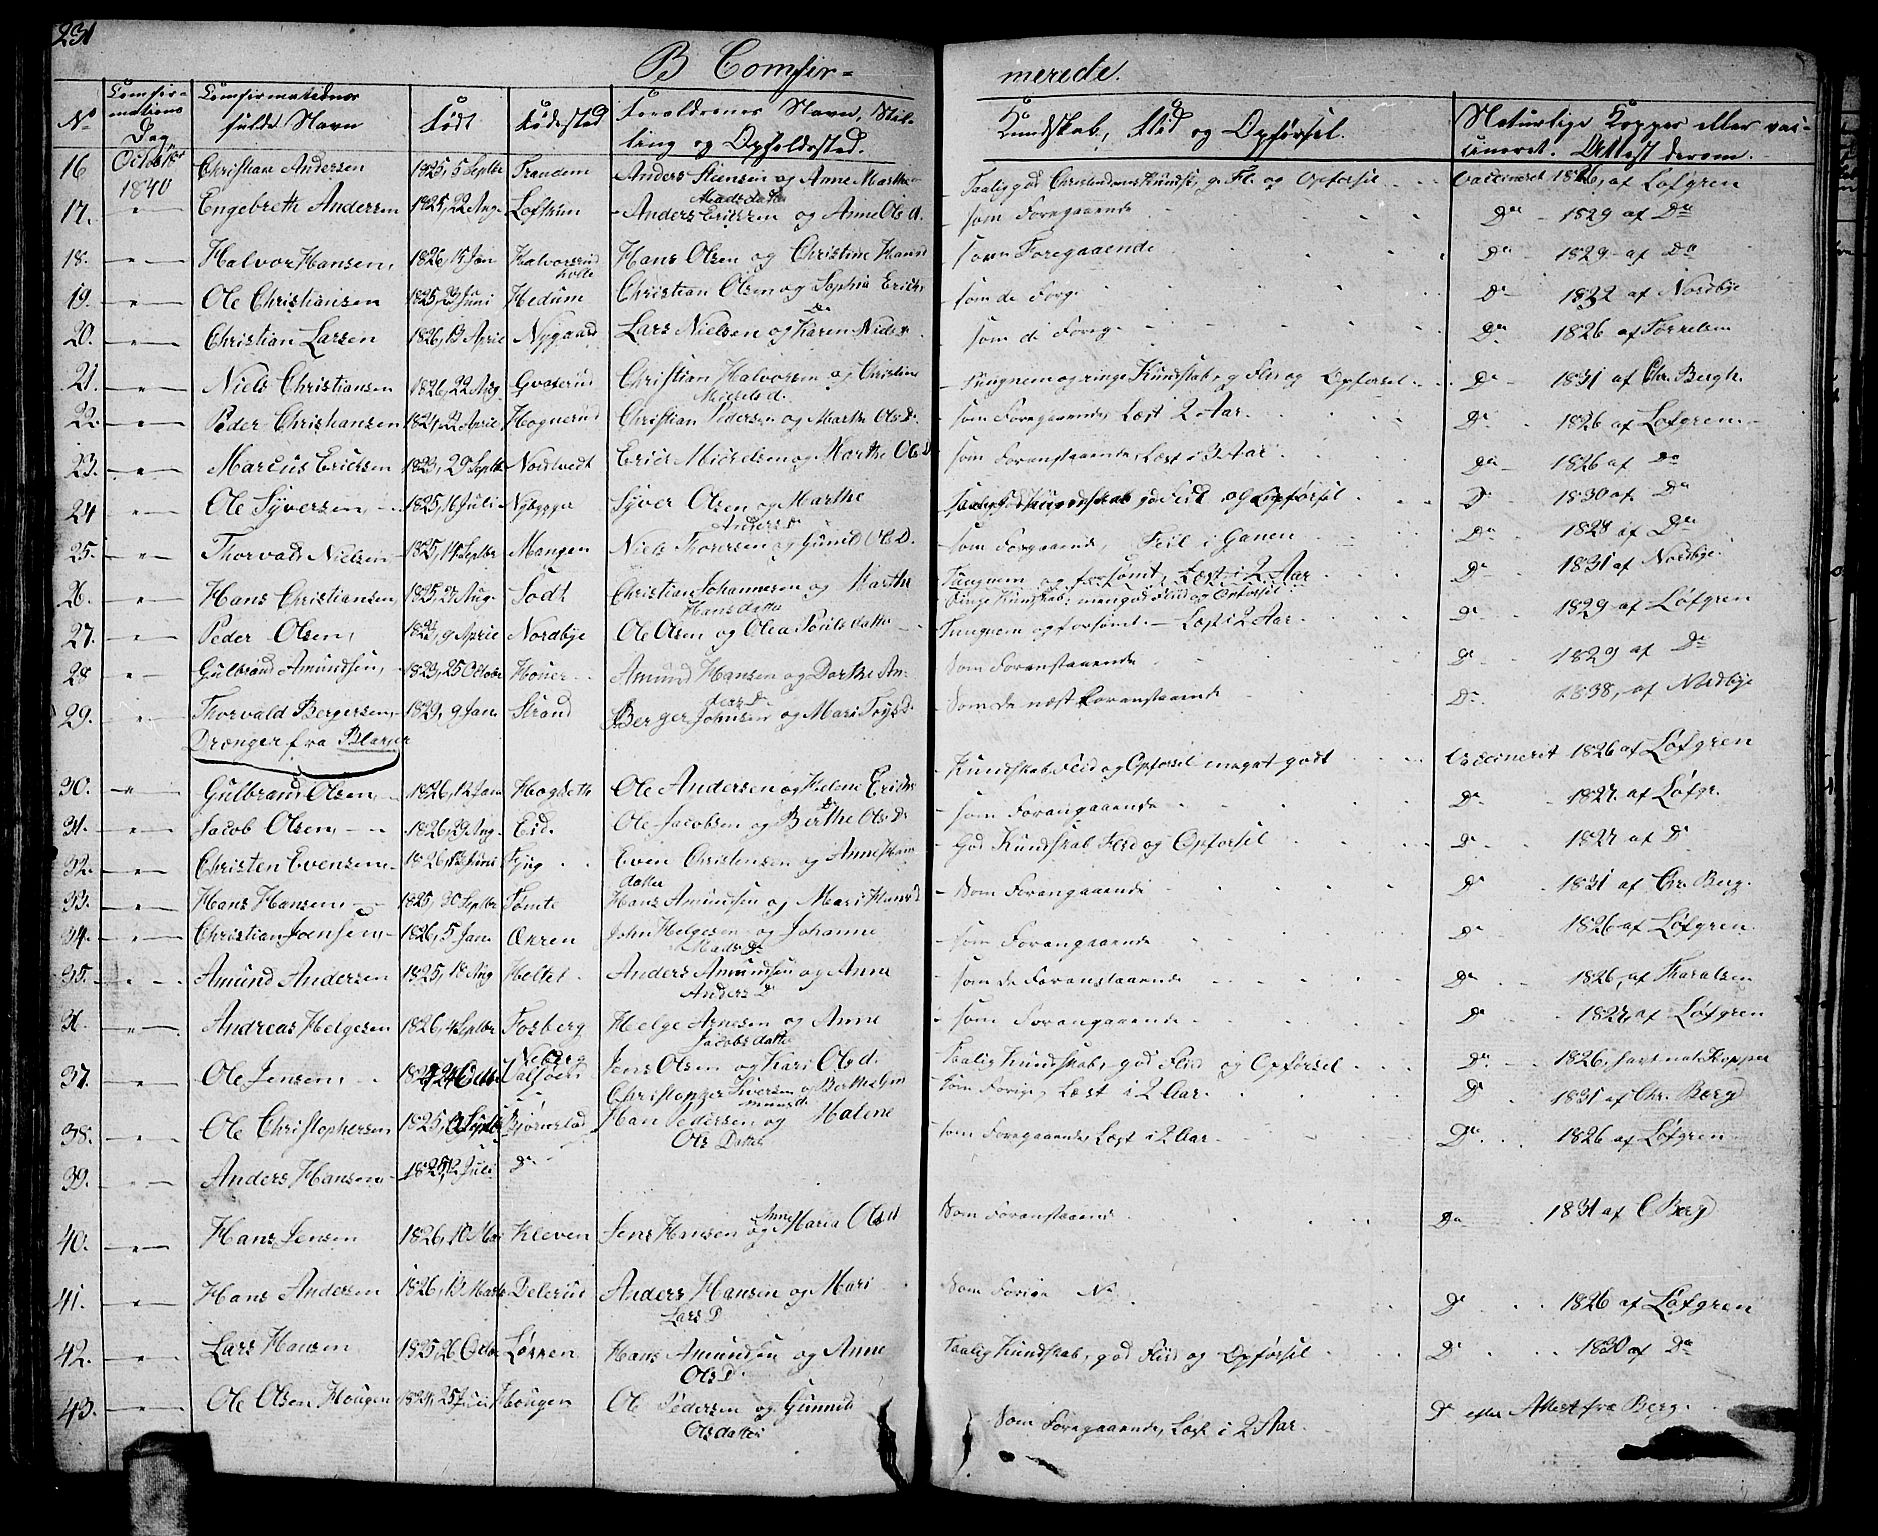 231
B Comfir- merede.
No
Comfirmations Dag
Comfirmatidnes fulde Navn
Født
Fødested
Foreldrenes Navn, Stilling og Opholdssted.
Kundskab, Flid og Opførsel.
Naturlige Kopper eller vaccineret. Attest derom.
16 October 1840 Christian Andersen 1825, 5 Septbr Trandem Anders Steensen og Anne Marthe Madsdatter Taalig god Christendoms Kundsk, g. Fl. og Opførsel Vaccineret 1826, af Løfgren
17. " Engebreth Andersen 1825, 22 Aug. Lofthun Anders Ericsen og Anne Ols d. som Foregaaende D° 1829 af D°
18. " Halvor Hansen, 1826, 15 Jan Halvorsrud Hans Olsen og Christine Hansd som Foregaaende D° 1829 af D°
19. " Ole Christiansen 1825, 23 Juni Hedum Christian Olsen og Sophia Erics D° som de Forg. D° 1822 af Nordbye
20. " Christian Larsen 1826, 13 April Nygaard Lars Nielsen og Karen som de Foreg. D° 1826 af
21. " Niels Christiansen 1826, 22 Aug Christian Halvorsen og Christine Michels d. Tungnem og ringe Kundskab, g Flid og Opførsel D° 1831 af Chr. Bergh.
22. " Peder Christiansen 1824, 22 April Hognerud Christian Pedersen og Marthe Ols D. som Foregaaende, Læst 2 Aar. D° 1826 af Løfgren
23. " Marcus Ericksen 1823, 29 Septbr Nordtvedt Erick Mickelsen og Marthe Ols D som Foranstaaende, Læst i 3 Aar D° 1826 af D°
24 " Ole Syversen, 1825, 16 Juli Nybygget Syver Olsen og Marthe Anders D Taalig god Kundskab god Flid og Opførsel D° 1830 af D°
25. " Thorvald Nielsen 1825, 14 Septbr Mangen Niels Thoresen og Gunild Ols D. som Forgaaende, Feil i Ganen D° 1828 af D°
26. " Hans Christiansen, 1825, 27 Aug. Sodt Christian Johannesen og Marthe Hansdatter Tungnem og forsømt, Læst i 2 Aar D° 1831 af Nordbye.
Ringe Kundskab; men god Flid og Opførsel
27. " Peder Olsen, 9 April Nordbye Ole Olsen og Olea Poulsdatter Tungnem og forsømt. - Læst i 2 Aar. D° 1829 af Løfgren
28 " Gulbrand Amundsen, 1823, 25 Octobr Houer Amund Hansen og Dorthe Anders D Som Foranstaaende D° 1829 af D°
29. " Thorvald Bergersen, 1829, 9 Jan. Strand Berger Johnsen og Mari Som de næst Foranstaaende D° 1838, af Nordbye
Drenger fra Blaker
30. " Gulbrand Olsen, 1826, 12 Jan Hogseth Ole Andersen og Helene Erics D Kundskab, Flid og Opførsel meget godt Vaccineret 1826 af Løfgren
31. " Jacob Olsen, 1826, 29 Aug. Eid. Ole Jacobsen og Berthe Ols D som Forangaaende D° 1827. af Løfgr.
32. " Christen Evensen 1826, Juni Even Christensen og Anne Hansdatter God Kundskab Flid og Opførsel D° 1827 af D°
33. " Hans Hansen 1825, 30 Septbr Tømte Hans Amundsen og Mari Hansd Som Forangaaende D° 1831 af Chr. Berg.
34. " Christian Jonsen 1826, 5 Jan. Ocren John Helgesen og Johanne Mads D° som Forangaaende D° 1826 af Løfgren.
35. " Amund Andersen 1825, 18 Aug Heltet Anders Amundsen og Anne Anders D som de Foranstaaende D° 1826, af Thoralsen
36. " Andreas Helgesen 1826, 4 Septbr Fosberg Helge Arnesen og Anne Jacobsdatter som Forangaaende D° 1827, af Løfgren
37. " Ole Jensen, Jens Olsen og Kari Ols d. Taalig Kundskab, god Flid og Opførsel D° 1826, havt nat. Kopper
38. " Ole Christophersen 1825, Septbr Bjørnstad Christopher Siversen og Berthe som Forrige, Læst i 2 Aar. D° 1831 af Chr. Berg
39. " Anders Hansen 1825, 12 Juli D° Han Pedersen og Malene Ols Datter som Foregaaende, Læst i 2 Aar. D° 1826 af Løfgren
40. " Hans Jensen 1826, 10 Mai Kleven Jens Hansen og Anne Maria Olsd Som Foranstaaende D° 1831 af C Berg
41. " Hans Andersen 1826, 13 Marts Delerud Anders Hansen og Mari Lars D Som Forrige N° D° 1826 af Løfgren
42. " Lars Hansen 1825, 26 Octbr Lørren Hans Amundsen og Anne Ols D. Taalig Kundskab, god Flid og Opførsel D° 1830 af D°
43. " Ole Olsen Hougen 1824, 25 Juli Hougen Ole Pedersen og Gunnild Olsdatter Som Foregaaende, Læst i 2 Aar. D° efter Attest fra Berg.